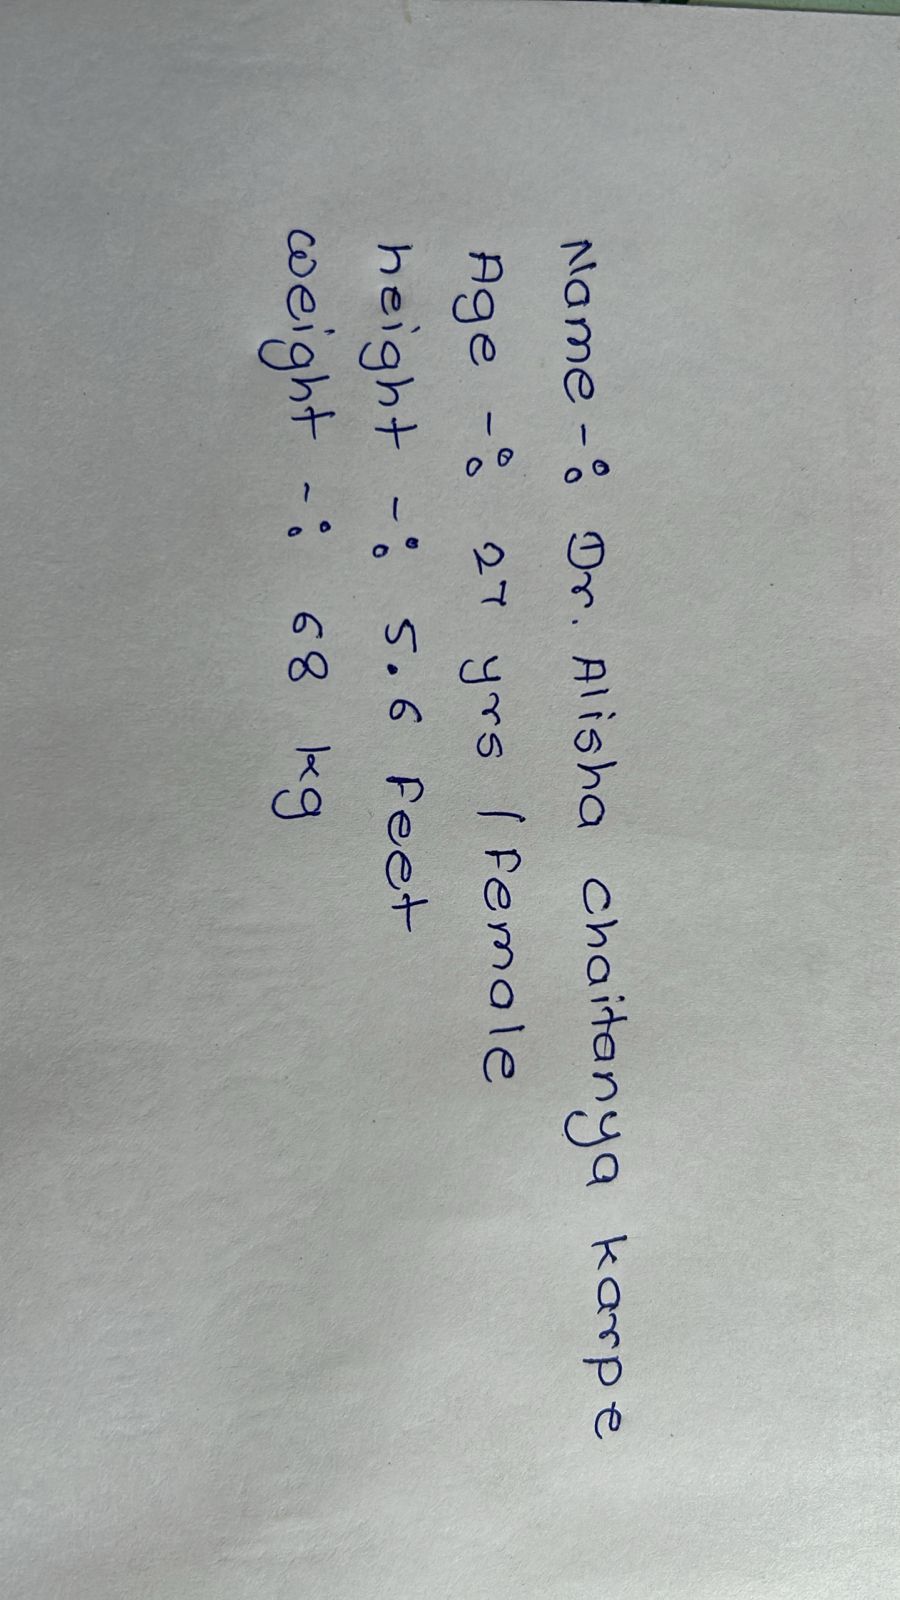 Name -: Dr. Alisha chaitanya karpe
Age -: 27 yrs / Female
height -: 5.6 Feet
weight -: 68 kg